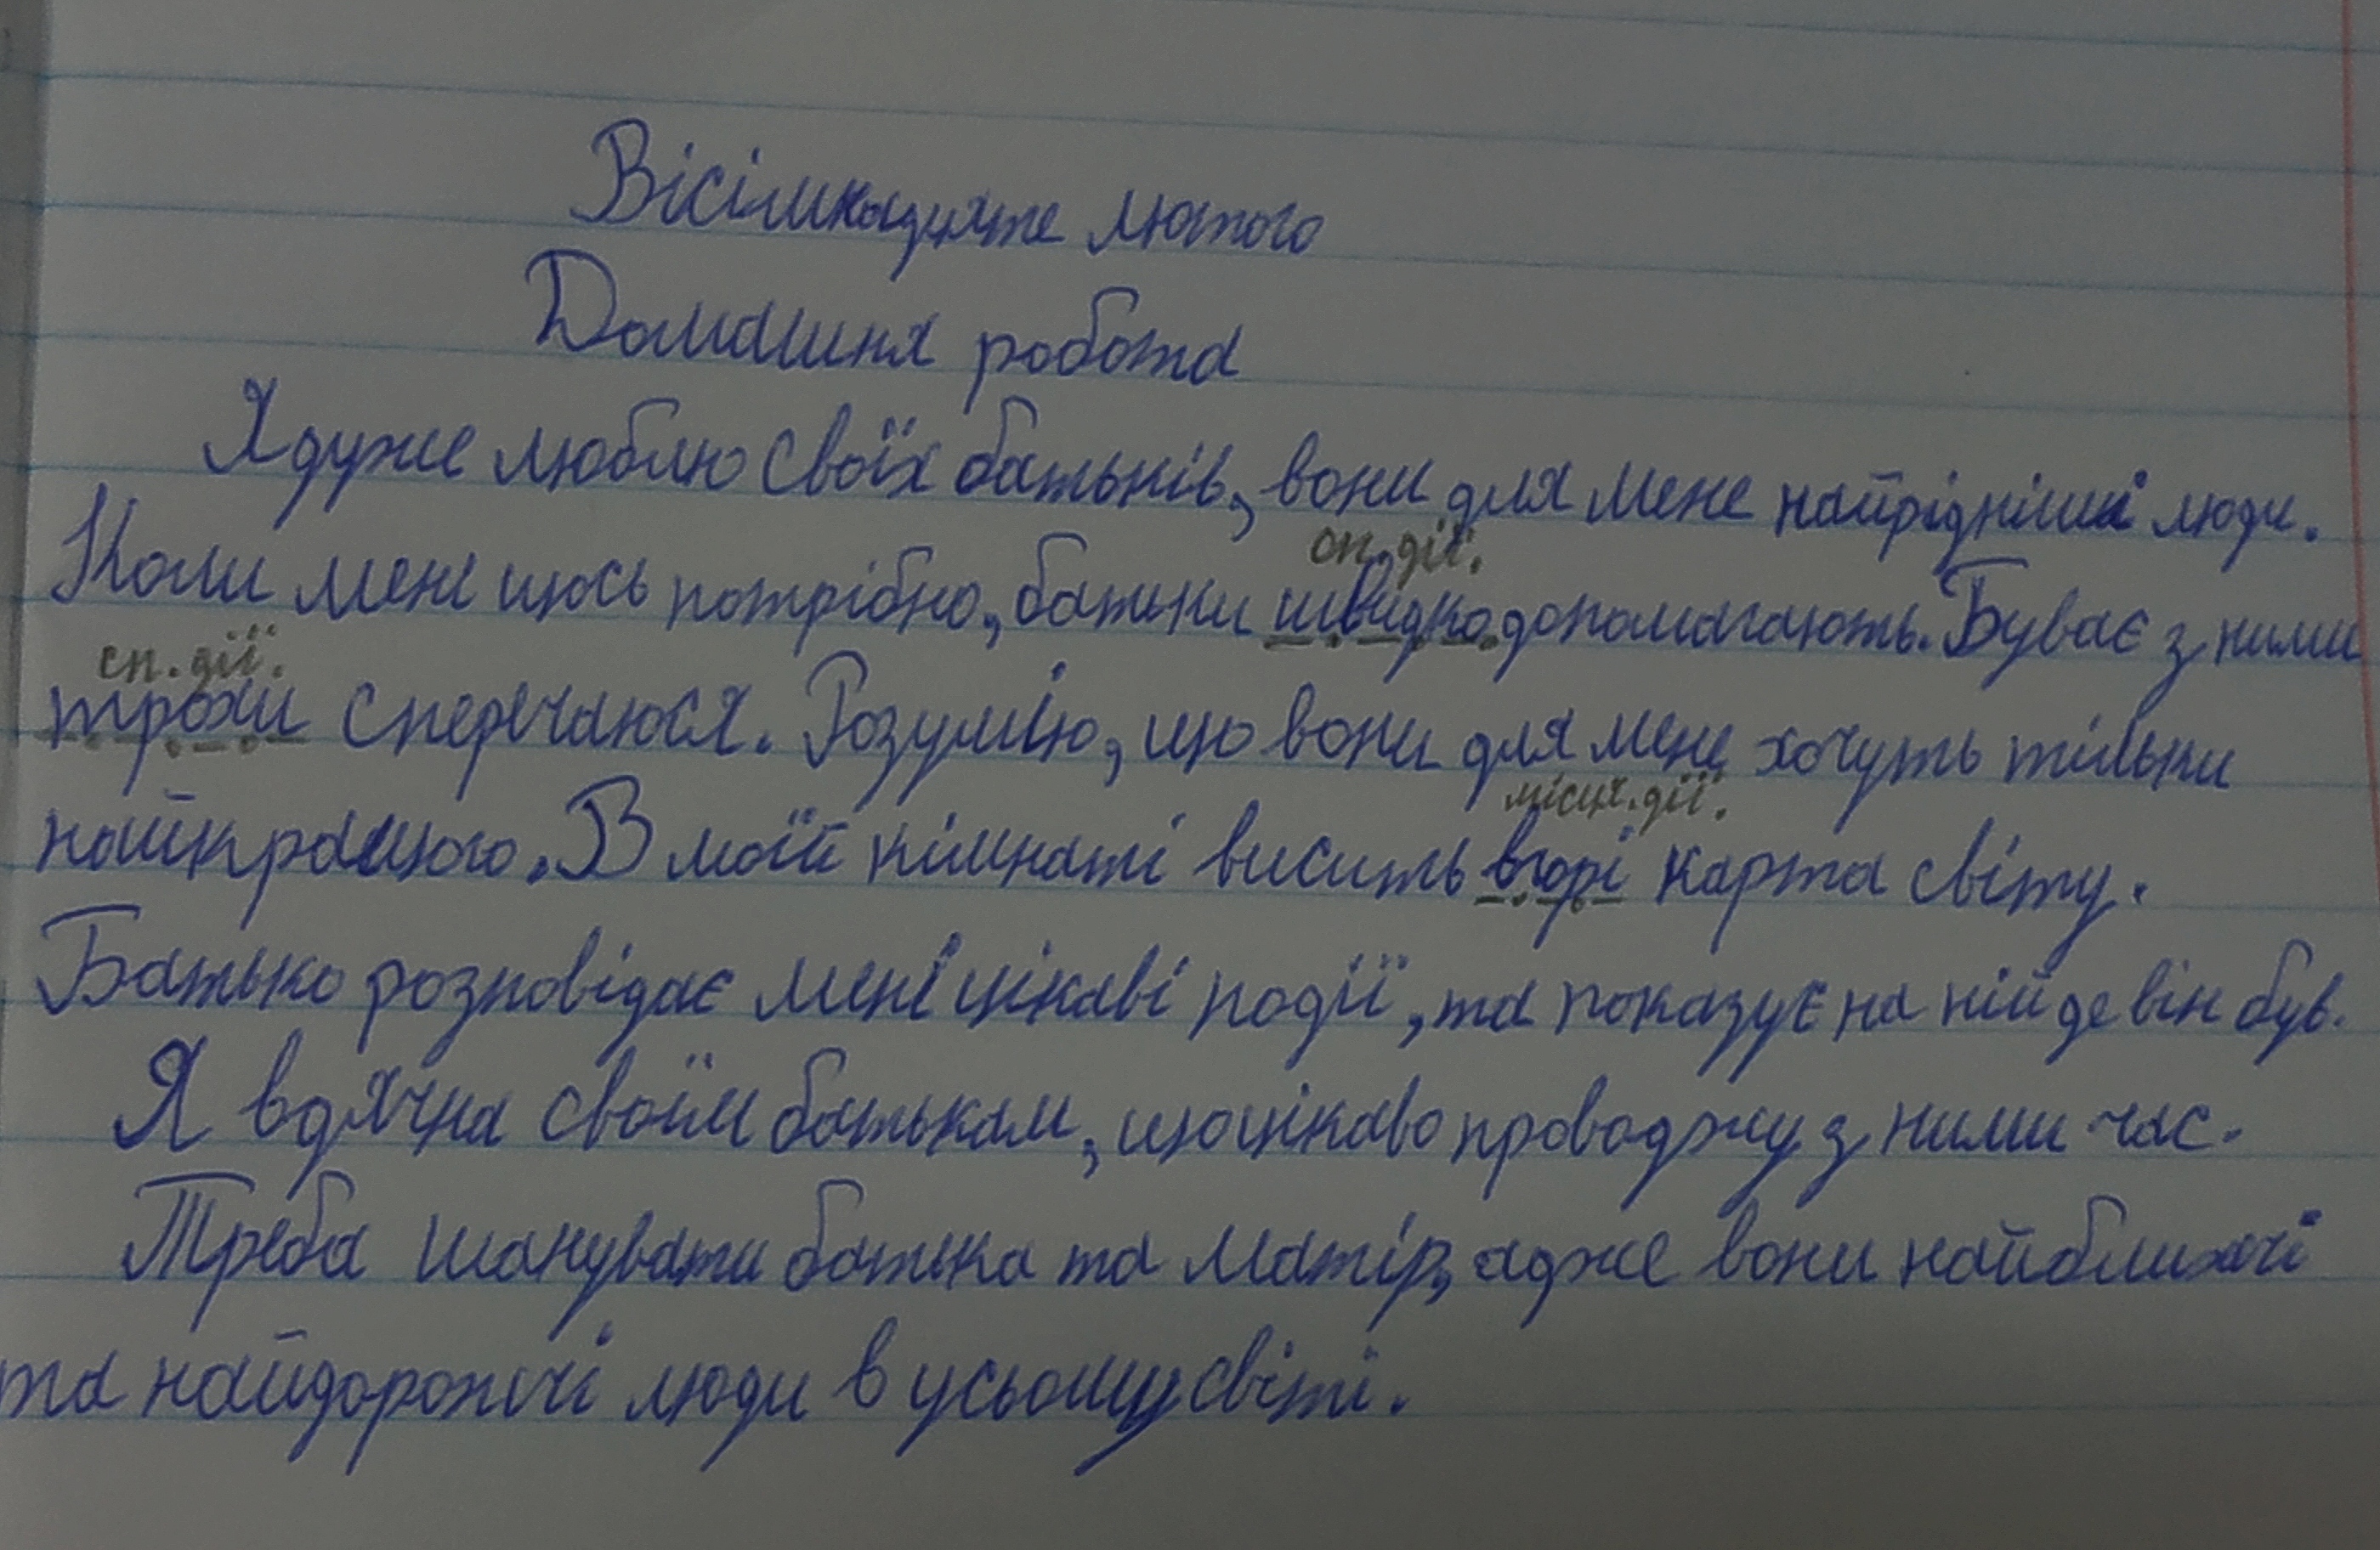 Вісімнадцяте лютого
Домашня робота
Я дуже люблю своїх батьків, вони для мене найрідніші люди.
сп. дії.
Коли мені щось потрібно, батьки швидко допомагають. Буває з ними
сп. дії.
трохи сперечаюся. Розумію, що вони для мене хочуть тільки
місця. дії.
найкращого. В моїй кімнаті висить вгорі карта світу.
Батько розповідає мені цікаві події, та показує на ній де він був.
Я вдячна своїм батькам, що цікаво проводжу з ними час.
Треба шанувати батька та матір, адже вони найближчі
та найдорожчі люди в усьому світі.